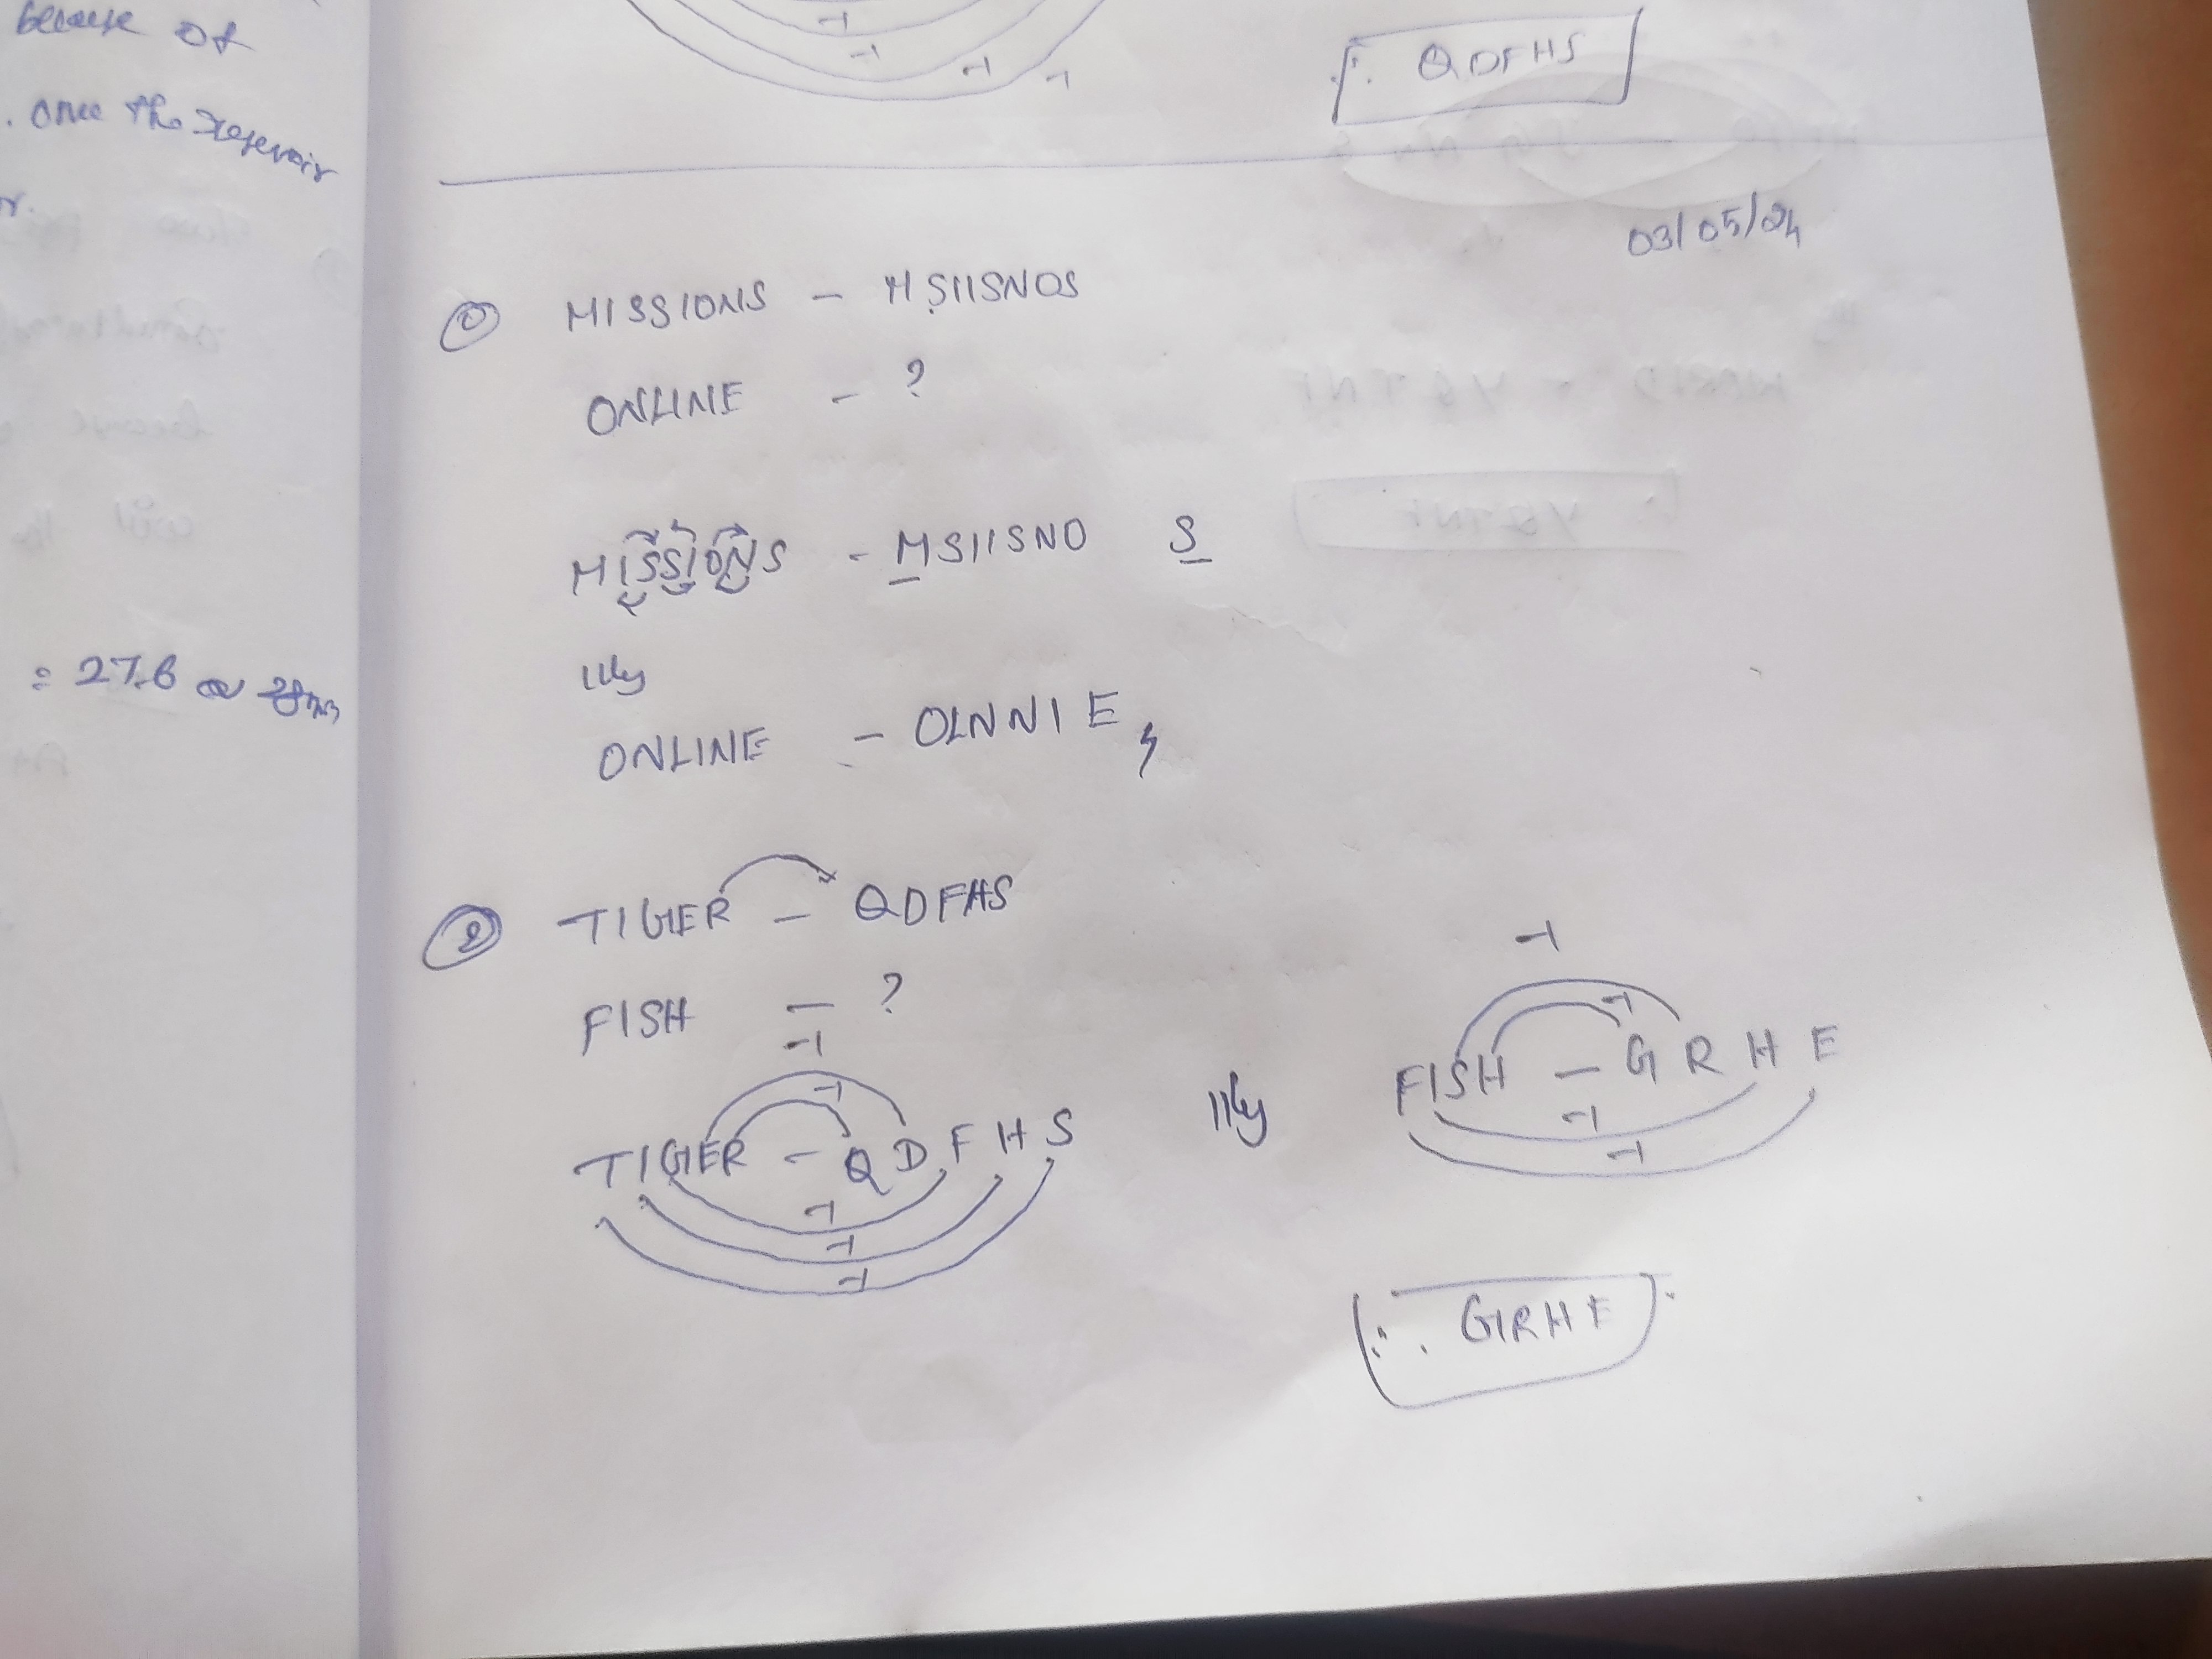 because of
. once the
= 27.6 or
-1
-1
-1
-1
∴ QDFHS
03/05/24
① MISSIONS - MSIISNOS
ONLINE - ?
MISSIONS - MSIISNO S
llly
ONLINE - OLNNIE
② TIGER - QDFHS
FISH - ?
-1
TIGER - QDFHS
-1
-1
-1
-1
llly
-1
FISH - GRHE
-1
-1
-1
∴ GRHE